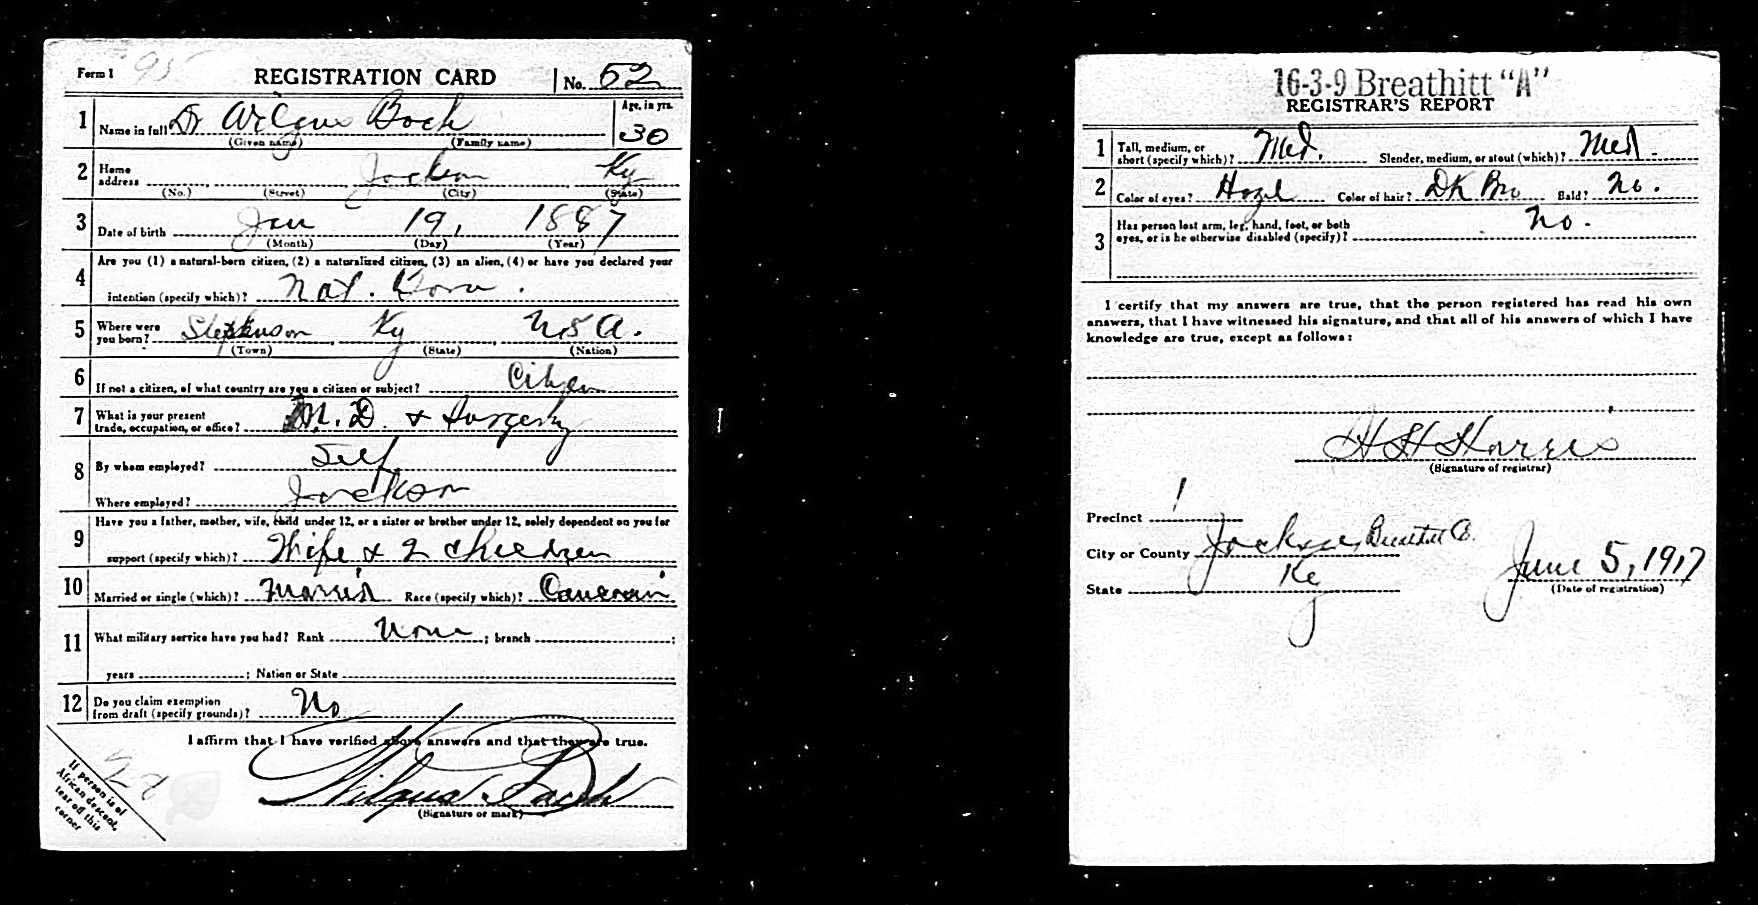 Form 1 95 REGISTRATION CARD No. 52
1 Name in full Dr Wilgus Bach Age, in yrs.
(Given name) (Family name) 30
2 Home address Jackson Ky
(No.) (Street) (City) (State)
3 Date of birth Jan 19, 1887
(Month) (Day) (Year)
4 Are you (1) a natural-born citizen, (2) a naturalized citizen, (3) an alien, (4) or have you declared your
intention (specify which)? Nat. Born.
5 Where were you born? Stephenson, Ky, U.S.A.
(Town) (State) (Nation)
6 If not a citizen, of what country are you a citizen or subject? Citizen
7 What is your present
trade, occupation, or office? M.D. & Surgery
8 By whom employed? Self
Where employed? Jackson
9 Have you a father, mother, wife, child under 12, or a sister or brother under 12, solely dependent on you for
support (specify which)? Wife & 2 children
10 Married or single (which)? Married Race (specify which)? Caucasian
11 What military service have you had? Rank None; branch ;
years ; Nation or State
12 Do you claim exemption
from draft (specify grounds)? No
I affirm that I have verified above answers and that they are true.
Wilgus Bach
(Signature or mark)
If person is of
African descent,
tear off this
corner
16-3-9 Breathitt "A"
REGISTRAR'S REPORT
1 Tall, medium, or
short (specify which)? Med. Slender, medium, or stout (which)? Med.
2 Color of eyes? Hazel Color of hair? Dk Bro Bald? No.
3 Has person lost arm, leg, hand, foot, or both
eyes, or is he otherwise disabled (specify)? No.
I certify that my answers are true, that the person registered has read his own
answers, that I have witnessed his signature, and that all of his answers of which I have
knowledge are true, except as follows:
H H Harris
(Signature of registrar)
Precinct 1
City or County Jackson, Breathitt Co.
State Ky
June 5, 1917
(Date of registration)